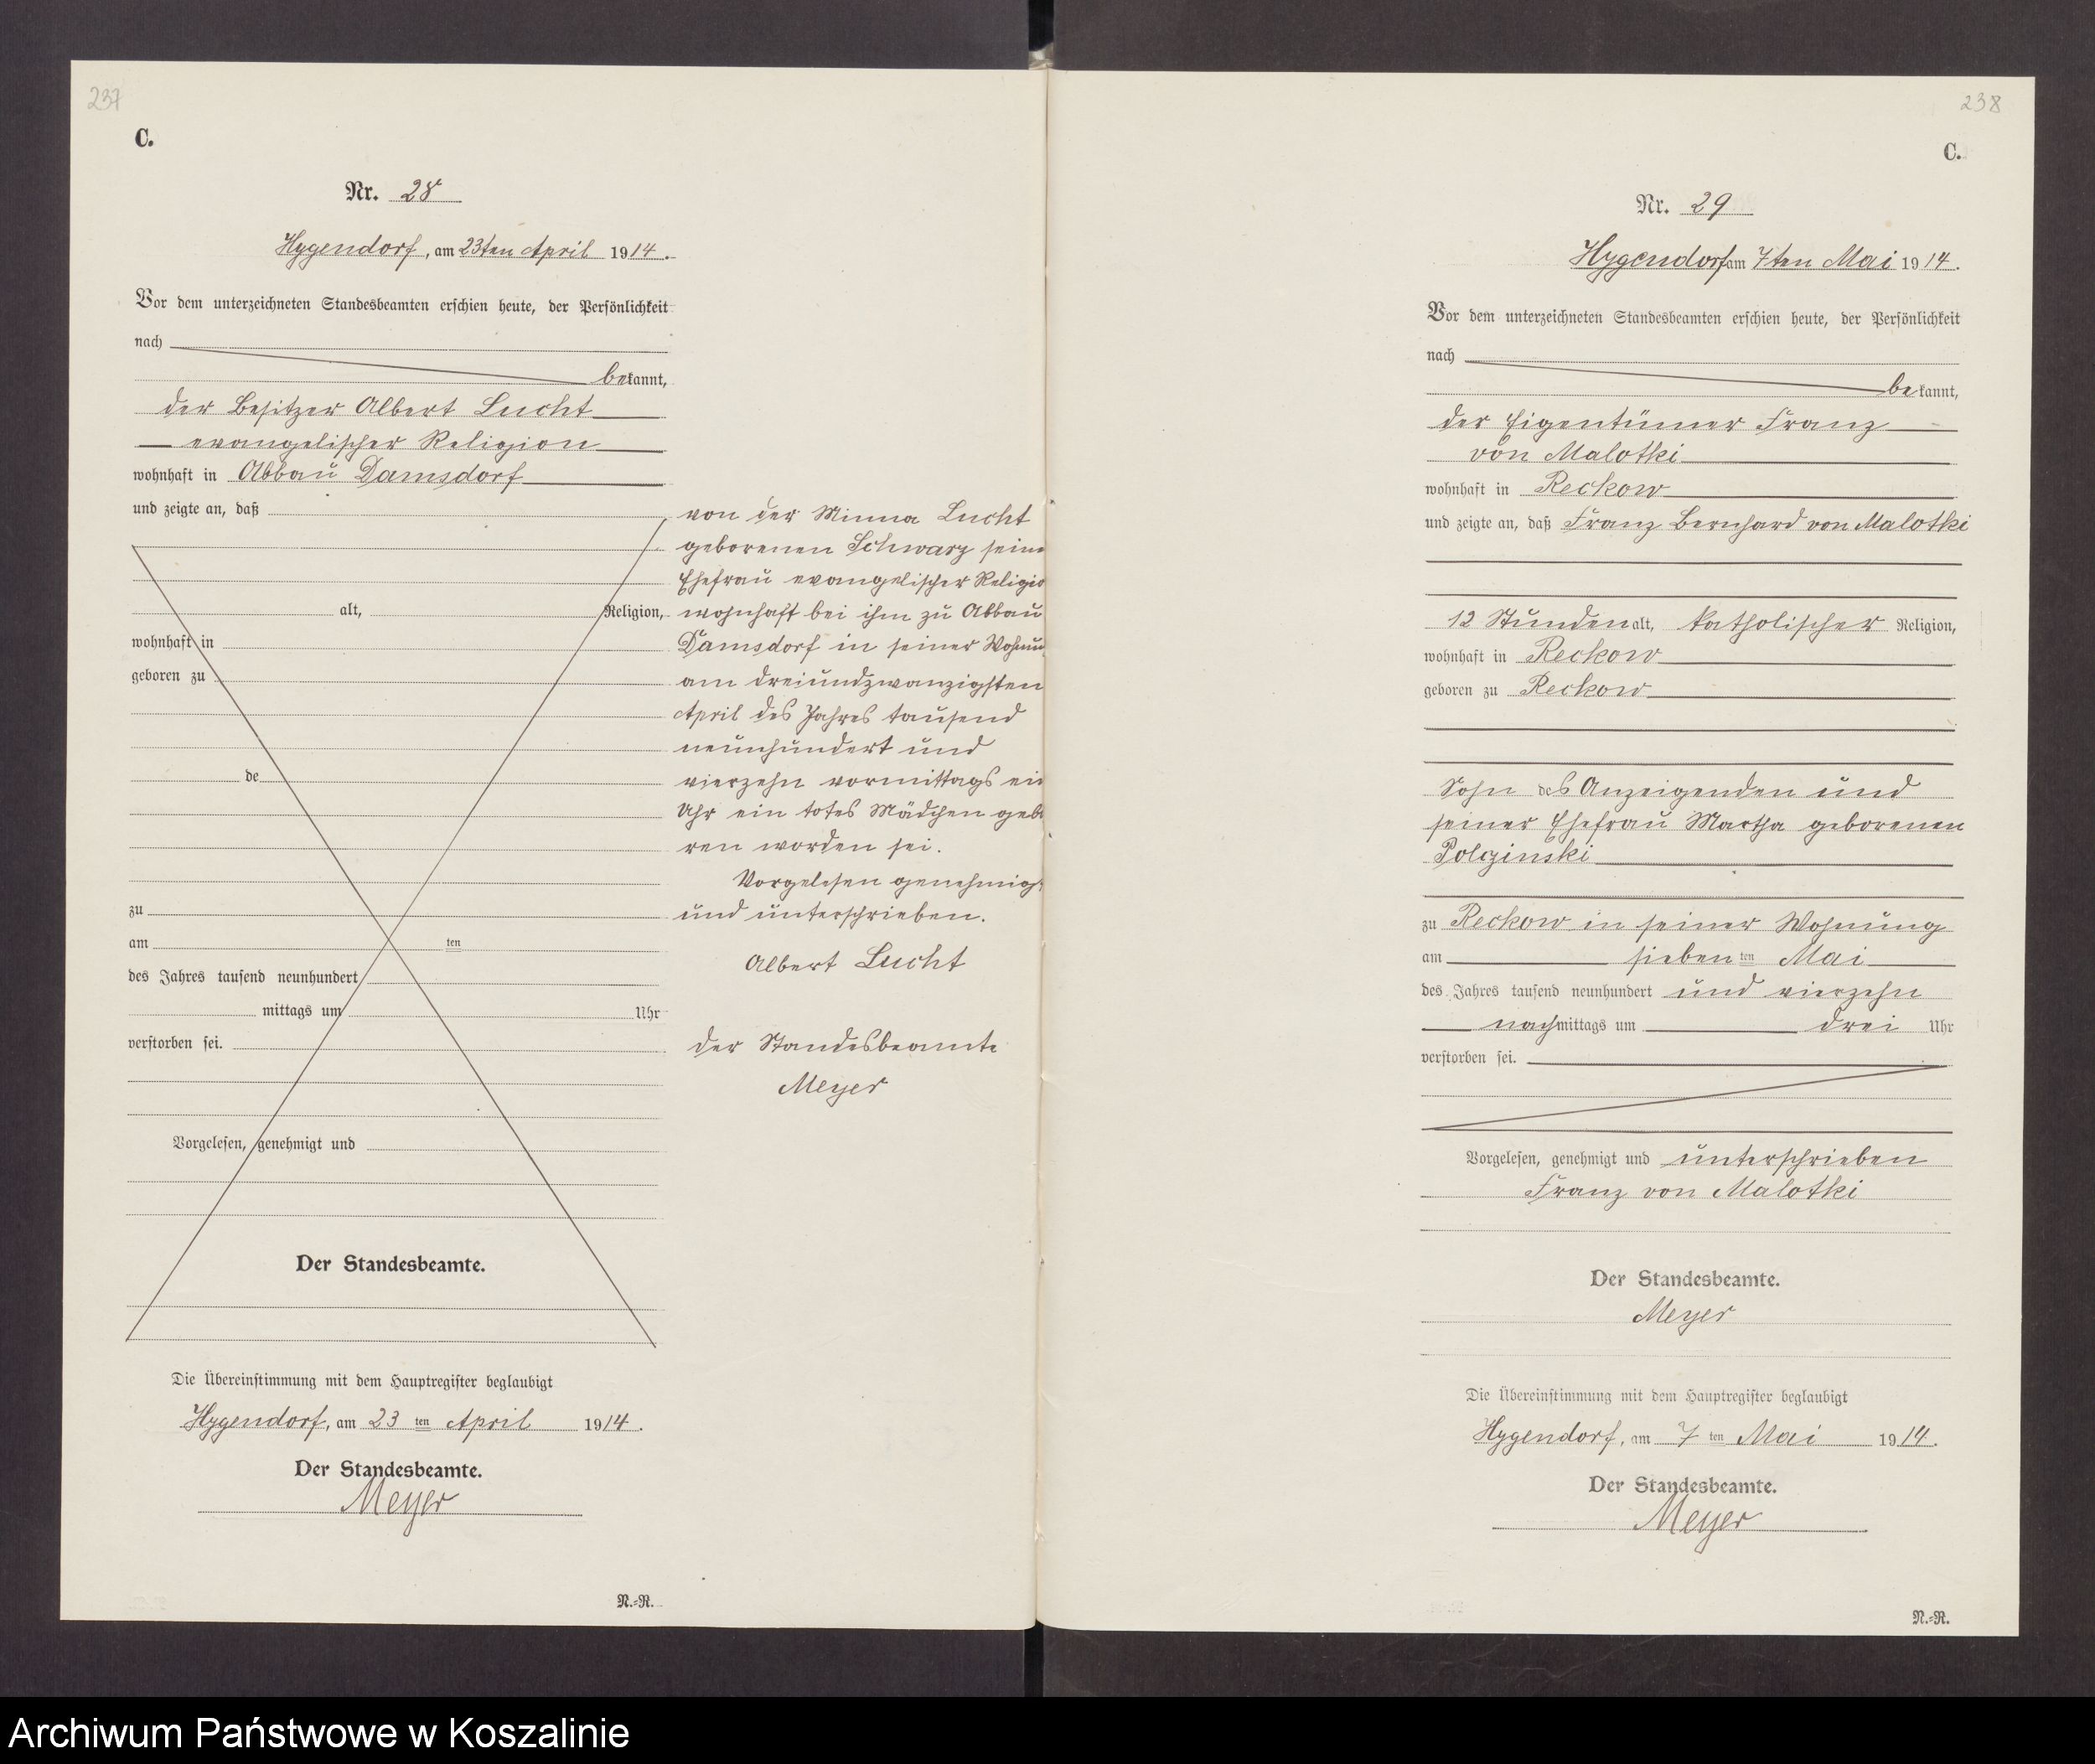 237
C.
Nr. 28
Hygendorf, am 23ten April 1914.
Vor dem unterzeichneten Standesbeamten erschien heute, der Persönlichkeit
nach
bekannt,
der Besitzer Albert Lucht
evangelischer Religion
wohnhaft in Abbau Damsdorf
und zeigte an, daß
alt, Religion,
wohnhaft in
geboren zu
de
zu
am ten
des Jahres tausend neunhundert
mittags um Uhr
verstorben sei.
Vorgelesen, genehmigt und
Der Standesbeamte.
von der Minna Lucht
geborenen Schwarz seine
Ehefrau evangelischer Religio
wohnhaft bei ihm zu Abbau
Damsdorf in seiner Wohnu
am dreiundzwanzigsten
April des Jahres tausend
neunhundert und
vierzehn vormittags ein
Uhr ein totes Mädchen gebo
ren worden sei.
Vorgelesen genehmigt
und unterschrieben.
Albert Lucht
der Standesbeamte
Meyer
Die Übereinstimmung mit dem Hauptregister beglaubigt
Hygendorf, am 23 ten April 1914.
Der Standesbeamte.
Meyer
N.=R.
238
C.
Nr. 29
Hygendorf am 7ten Mai 1914.
Vor dem unterzeichneten Standesbeamten erschien heute, der Persönlichkeit
nach
bekannt,
der Eigentümer Franz
von Malotki
wohnhaft in Reckow
und zeigte an, daß Franz Bernhard von Malotki
12 Stunden alt, katholischer Religion,
wohnhaft in Reckow
geboren zu Reckow
Sohn des Anzeigenden und
seiner Ehefrau Martha geborenen
Polczinski
zu Reckow in seiner Wohnung
am sieben ten Mai
des Jahres tausend neunhundert und vierzehn
nachmittags um drei Uhr
verstorben sei.
Vorgelesen, genehmigt und unterschrieben
Franz von Malotki
Der Standesbeamte.
Meyer
Die Übereinstimmung mit dem Hauptregister beglaubigt
Hygendorf, am 7 ten Mai 1914.
Der Standesbeamte.
Meyer
N.=R.
Archiwum Państwowe w Koszalinie